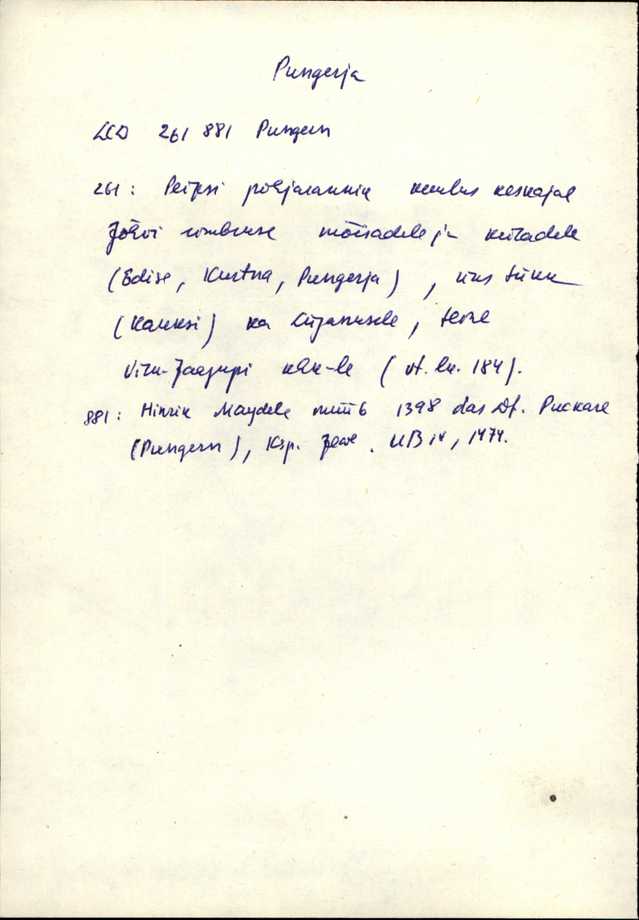 Pungerja
LCD 261 881 Pungern
261: Peipsi põhjarannik kuulus keskajal
Jõhvi ümbruse mõisadele ja küladele
(Edise, Kurtna, Pungerja), üks tükk
(Kauksi) ka Lüganusele, teine
Viru-Jaagupi khk-le (vt. lk. 184).
881: Hinrik Maydele müüb 1398 das Df. Puckare
(Pungern), Ksp. Jewe. UB IV, 1474.